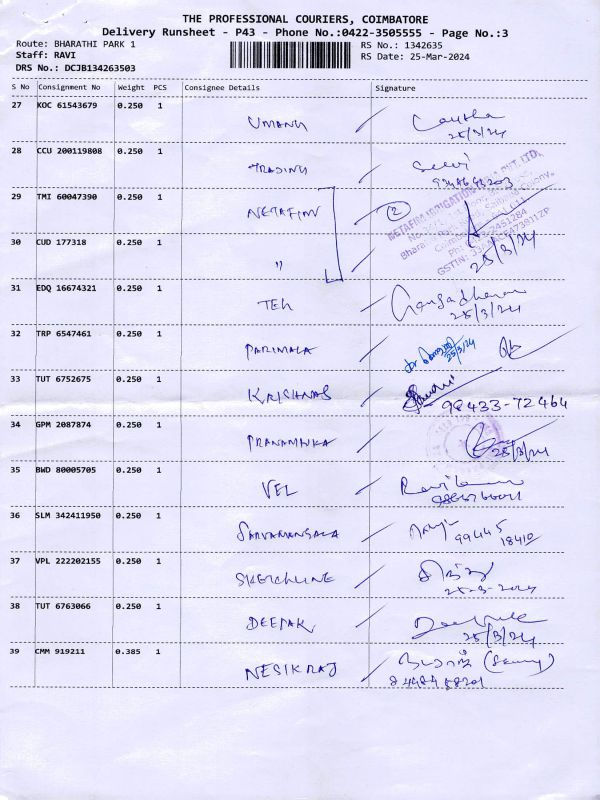 THE PROFESSIONAL COURIERS, COIMBATORE
Delivery Runsheet - P43 - Phone No.:0422-3505555 - Page No.:3
Route: BHARATHI PARK 1 RS No.: 1342635
Staff: RAVI RS Date: 25-Mar-2024
DRS No.: DCJB134263503
S No Consignment No Weight PCS Consignee Details Signature
27 KOC 61543679 0.250 1 UMANG
25/3/24
28 CCU 200119808 0.250 1 TRADING Selvi
29 TMI 60047390 0.250 1 NETAFIM 2
30 CUD 177318 0.250 1 "
25/3/24
31 EDQ 16674321 0.250 1 TEH Gangadharan
25/3/24
32 TRP 6547461 0.250 1 PARIMALA
25/3/24
33 TUT 6752675 0.250 1 KRISHNAS
98433-72464
34 GPM 2087874 0.250 1
25/3/24
35 BWD 80005705 0.250 1 VEL
36 SLM 342411950 0.250 1 SARVAMANGALA
99445
18410
37 VPL 222202155 0.250 1 SKETCHLINE
25-3-2024
38 TUT 6763066 0.250 1 DEEPAK
25/3/24
39 CMM 919211 0.385 1 NESIKRAJ